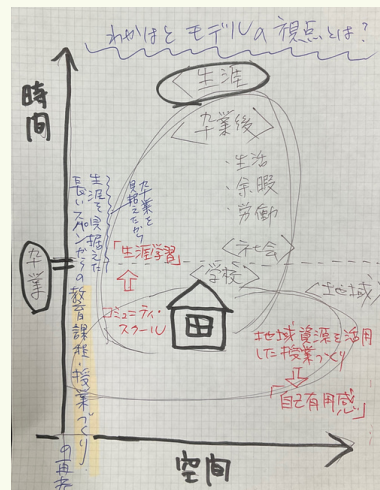 わかはと モデルの 視点とは?
時間
<生涯>
<卒業後>
・生活
・余暇
・労働
<社会>
<学校>
<地域>
卒業を
見据えたから
生涯を見据えた
長いスパンからの教育課程・授業づくり
の再考
卒業
「生涯学習」
コミュニティ・
スクール
地域資源を活用
した授業づくり
「自己有用感」
空間